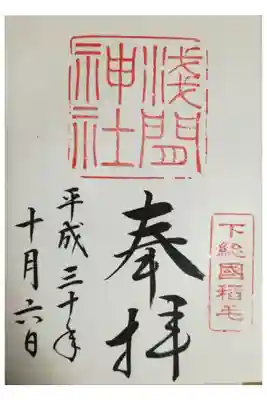 下総國稲毛
浅間神社
奉拝
平成三十年
十月六日